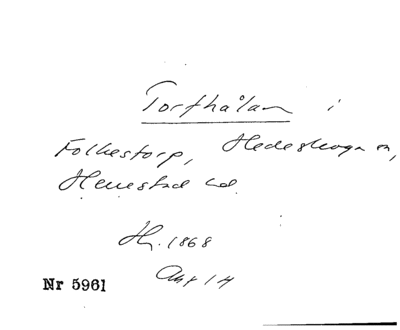 Torfhålan i
Folkestorp, Hedeskoga sn,
Herrestad hd.
Hj. 1868
Akt 14
Nr 5961